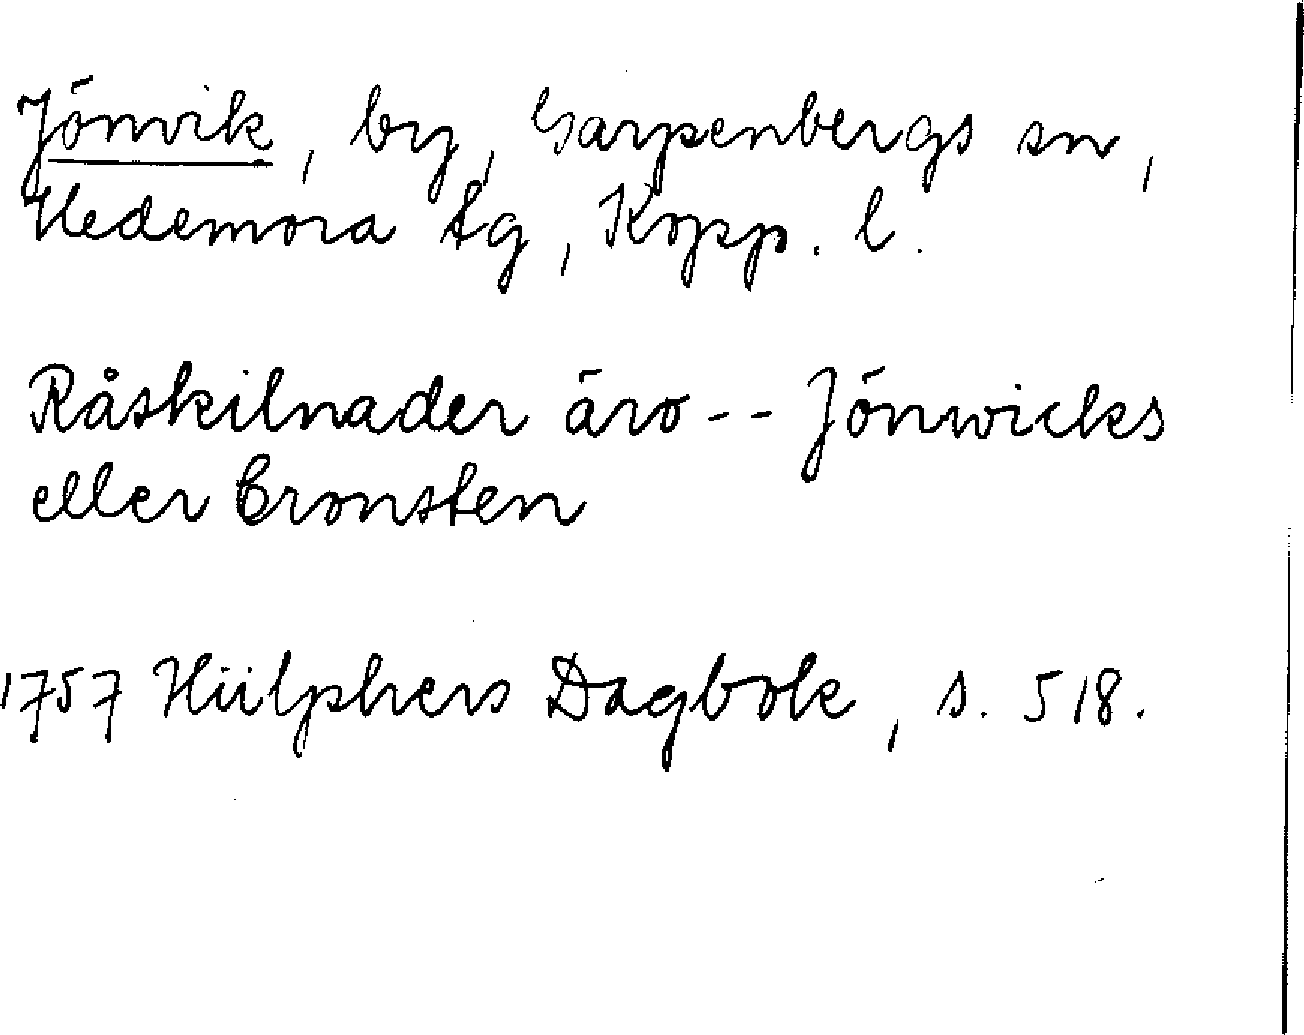 Jönvik, by, Garpenbergs sn,
Hedemora tg, Kopp. l.
Råskilnader äro -- Jönwicks
eller Bronsten
1757 Hülphers Dagbok, s. 518.